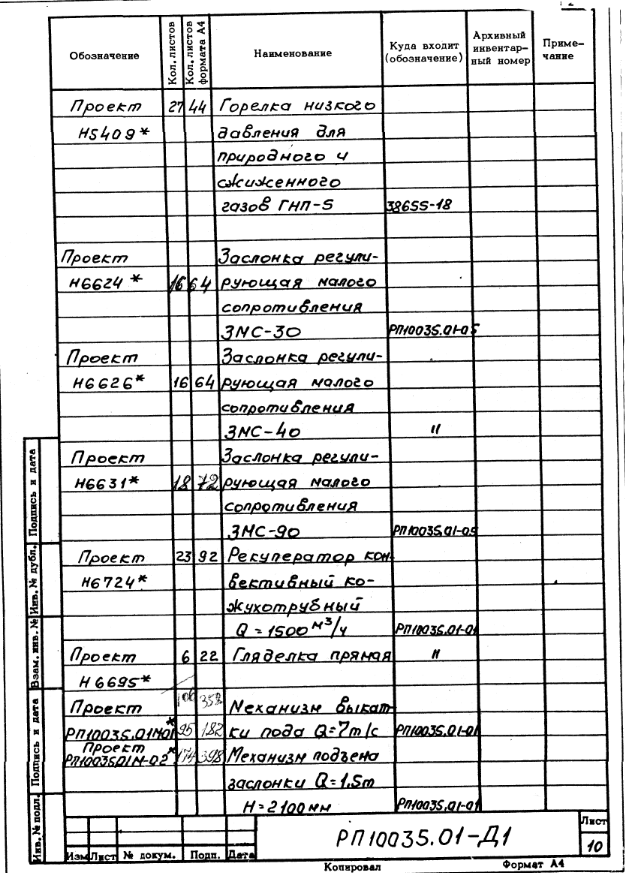 Обозначение Кол. листов Кол. листов формата А4 Наименование Куда входит (обозначение) Архивный инвентарный номер Примечание
Проект 27 44 Горелка низкого
Н5409* давления для
природного и
сжиженного
газов ГНП-5 38655-18
Проект Заслонка регули-
Н6624* 16 64 рующая малого
сопротивления
ЗМС-30 РП10035.01-05
Проект Заслонка регули-
Н6626* 16 64 рующая малого
сопротивления
ЗМС-40 "
Проект Заслонка регули-
Н6631* 18 72 рующая малого
сопротивления
ЗМС-90 РП10035.01-05
Проект 23 92 Рекуператор кон
Н6724* вективный ко-
жухотрубный
Q = 1500 м³/ч РП10035.01-01
Проект 6 22 Гляделка прямая "
Н6695*
Проект Механизм выкат
РП10035.01М01* 95 182 ки пода Q=7т/с РП10035.01-01
Проект
РП10035.01М-02* 174 398 Механизм подъема
заслонки Q=1,5т
Н=2100мм РП10035.01-01
Подпись и дата
Инв. № дубл.
Взам. инв. №
Подпись и дата
Инв. № подл.
РП10035.01-Д1
Лист
10
Изм Лист № докум. Подп. Дата
Копировал Формат А4